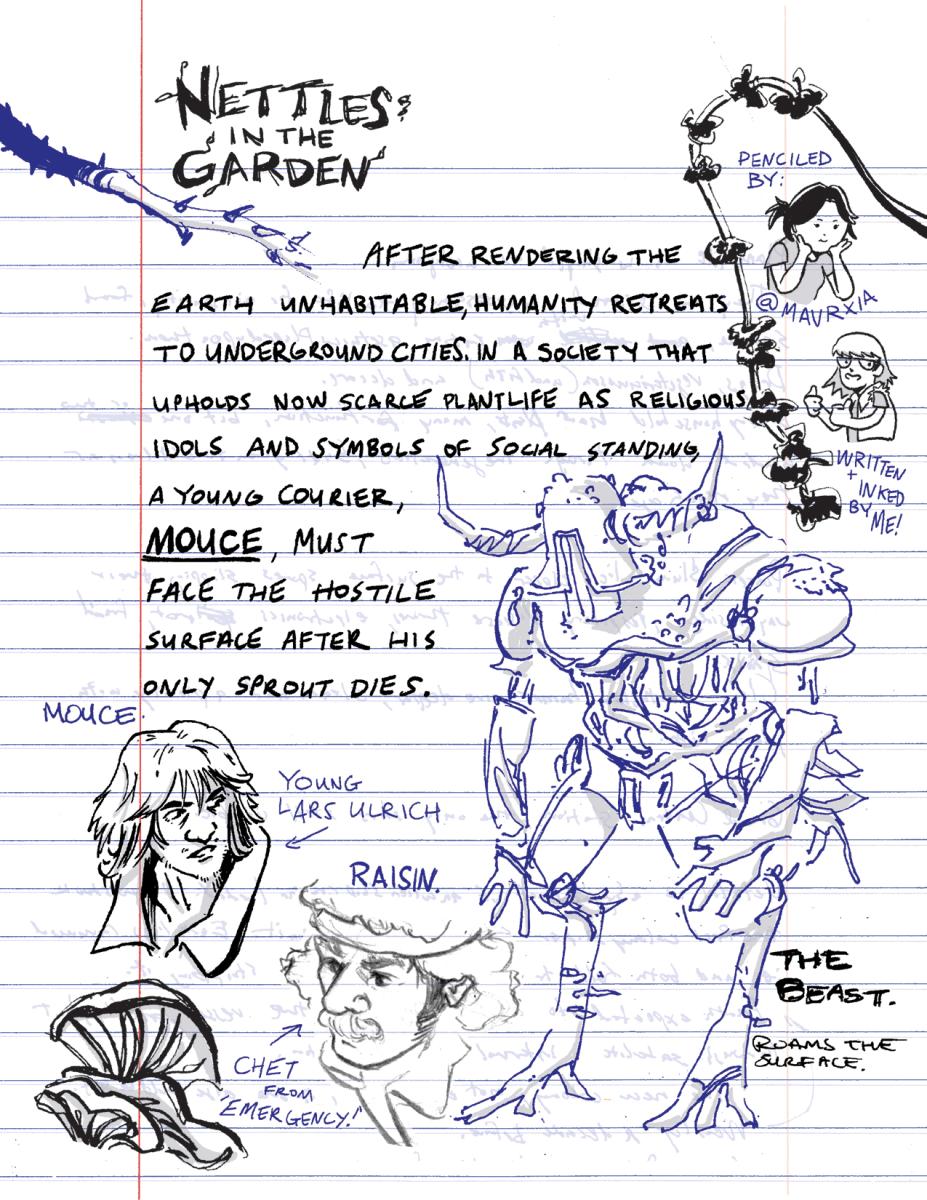 NETTLES
IN THE
GARDEN
PENCILED
BY:
@MAVRXIA
AFTER RENDERING THE
EARTH UNHABITABLE, HUMANITY RETREATS
TO UNDERGROUND CITIES. IN A SOCIETY THAT
UPHOLDS NOW SCARCE PLANTLIFE AS RELIGIOUS
IDOLS AND SYMBOLS OF SOCIAL STANDING,
A YOUNG COURIER,
MOUCE, MUST
FACE THE HOSTILE
SURFACE AFTER HIS
ONLY SPROUT DIES.
WRITTEN
+ INKED
BY
ME!
MOUCE.
YOUNG
LARS ULRICH
RAISIN.
CHET
FROM
"EMERGENCY!"
THE
BEAST.
ROAMS THE
SURFACE.